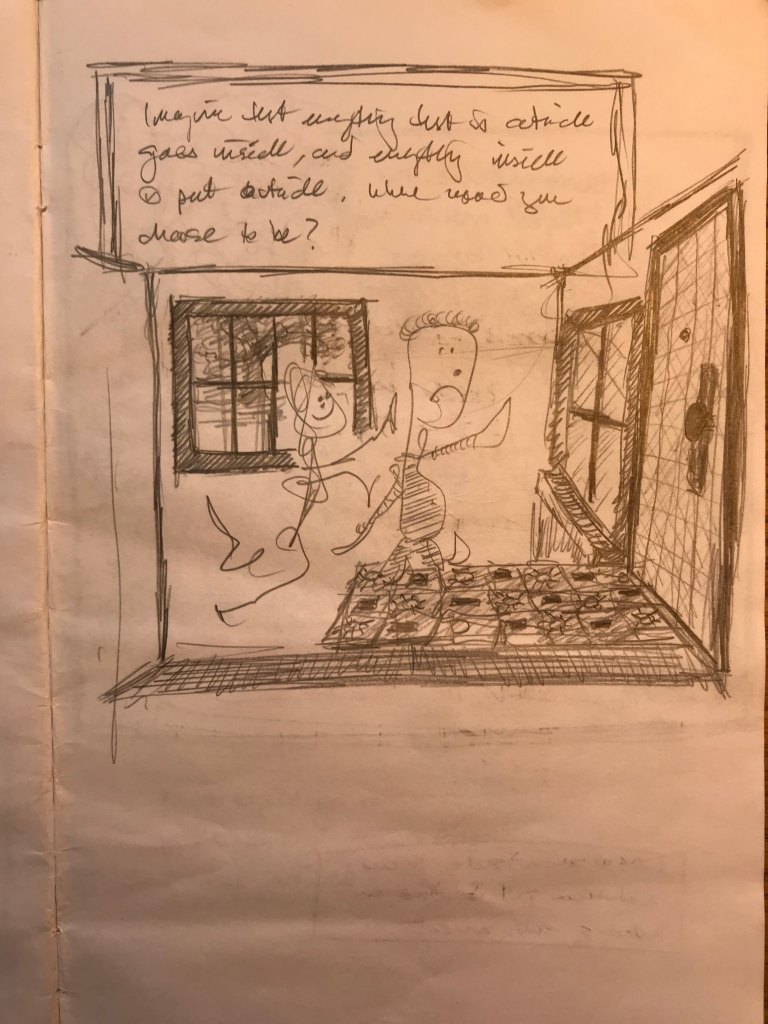 Imagine that everything that is outside
goes inside, and everything inside
is put outside. Where would you
choose to be?